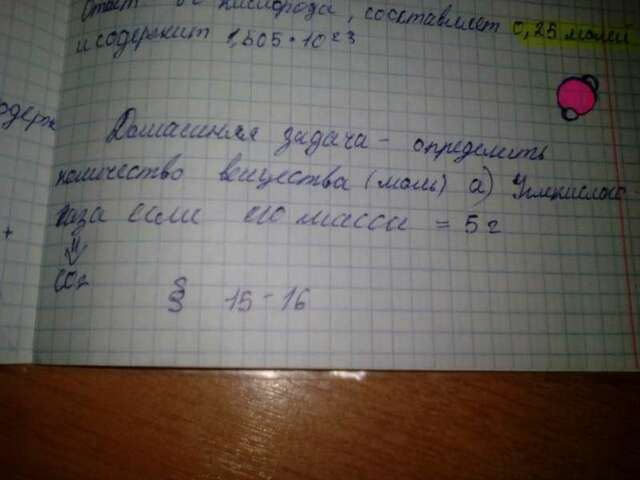 Ответ: 8г кислорода, составляет 0,25 молей
и содержит 1,505 · 10 23
одерж
Домашняя задача - определить
количество вещества (моль) а) Углекислого
газа если его массы = 5 г
+
CO2
§ 15-16